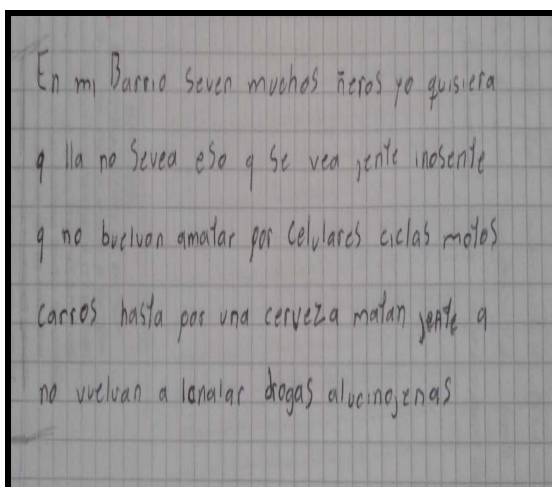 En mi Barrio Seven muchos ñeros yo quisiera
q lla no Sevea eso q se vea jente inosente
q no buelvan amatar por celulares ciclas motos
carros hasta por una cerveza matan jente q
no vuelvan a Ianalar drogas alucinojenas